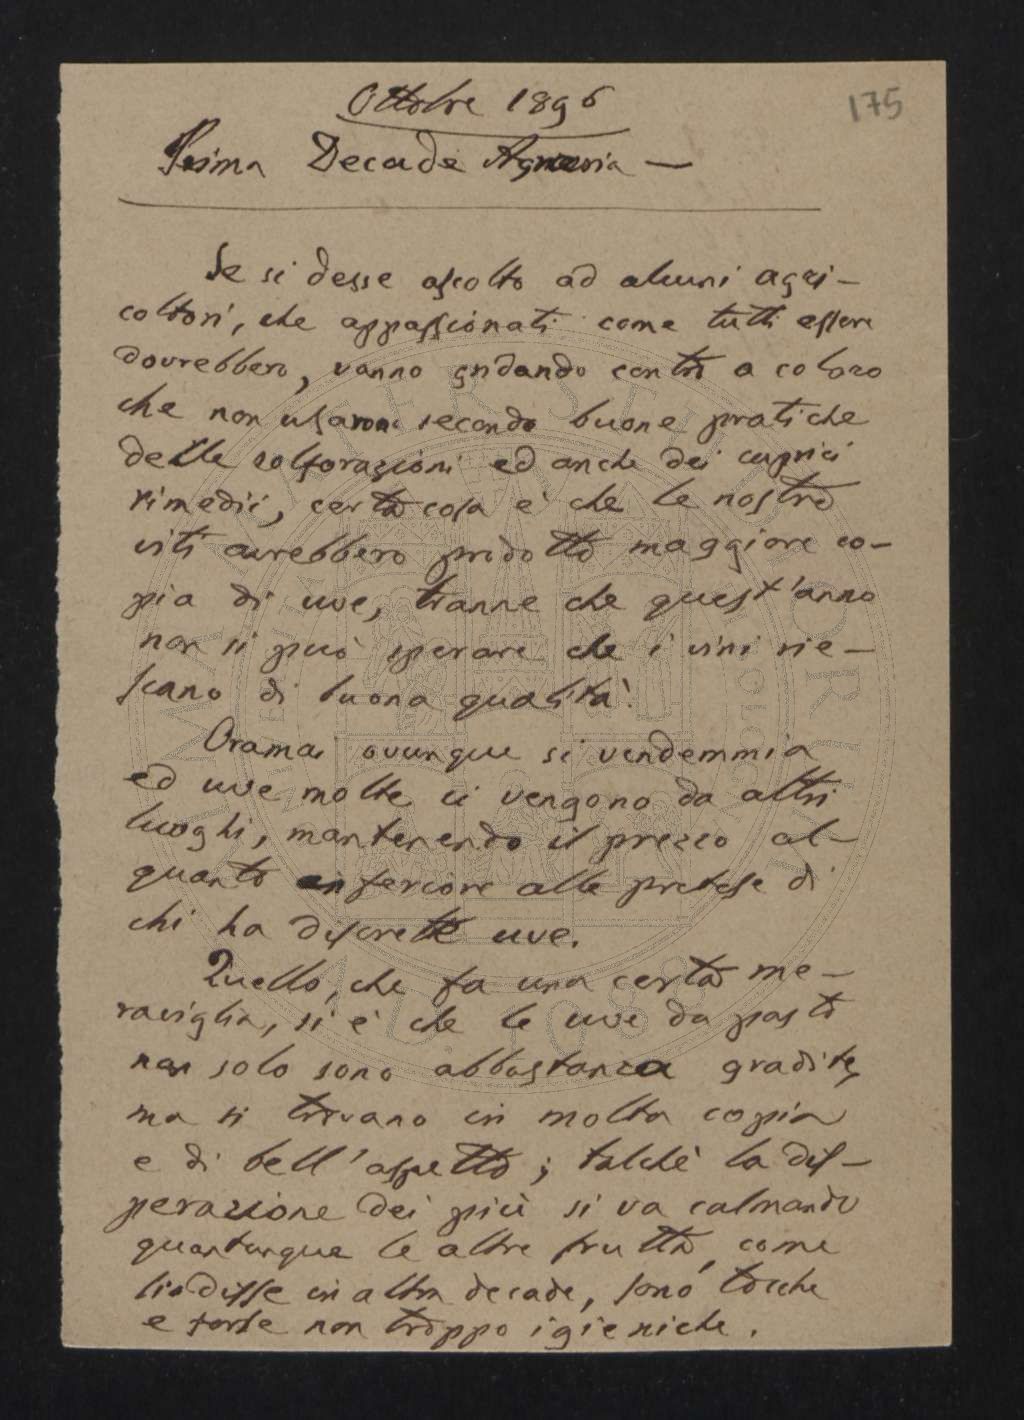 175
Ottobre 1896
Prima Decade Agraria —
Se si desse ascolto ad alcuni agri-
coltori, che appassionati come tutti essere
dovrebbero, vanno gridando contro a coloro
che non usarono secondo buone pratiche
delle solforazioni ed anche dei cuprici
rimedii, certa cosa è che le nostre
viti avrebbero prodotto maggiore co-
pia di uve, tranne che quest'anno
non si può sperare che i vini rie-
scano di buona qualità.
Oramai ovunque si vendemmia
ed uve molte ci vengono da altri
luoghi, mantenendo il prezzo al-
quanto inferiore alle pretese di
chi ha discrete uve.
Quello, che fa una certa me-
raviglia, si è che le uve da pasto
non solo sono abbastanza gradite,
ma si trovano in molta copia
e di bell'aspetto; talchè la dis-
perazione dei più si va calmando
quantunque le altre frutta, come
si disse in altra decade, sono tocche
e forse non troppo igieniche.